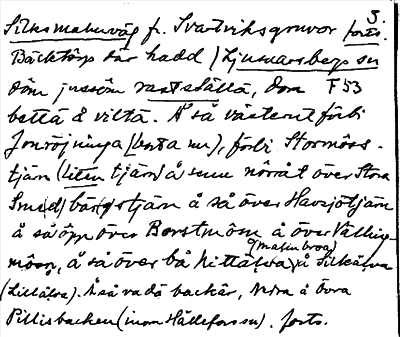 3.
Silksmalmväg fr. Svartviksgruvor forts.
Bäcktorp där hadd / Ljusnarsberg sn
döm jussöm rastställa, dom F53
bettä å viltä. Å så västerut förbi
Jonröjninga (borta nu), förbi Stormöss-
tjärn (liten tjärn) å senn nôrråt över Stora
Smed) bärgstjärn å så över Havsjötjärn
å så opp över Borstmôsn å över Välling-
(malmbroa)
môsn, å så över bå Hittälva å Silkälva
(Lillälva). Å så va dä backär, Nedra å Övra
Pillisbacken (inom Hällefors sn). forts.